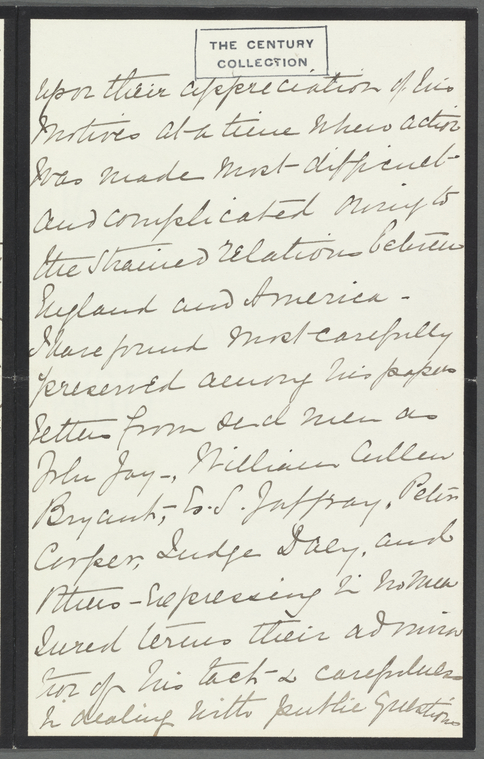 THE CENTURY
COLLECTION
upon their appreciation of his
motives at a time when action
was made most difficult
and complicated owing to
the strained relations between
England and America -
I have found most carefully
preserved among his papers
letters from such men as
John Jay -, William Cullen
Bryant, E. S. Jaffray, Peter
Cooper, Judge Daly, and
others - expressing in no mea
sured terms their admira
tion of his tact & carefulness
in dealing with public questions